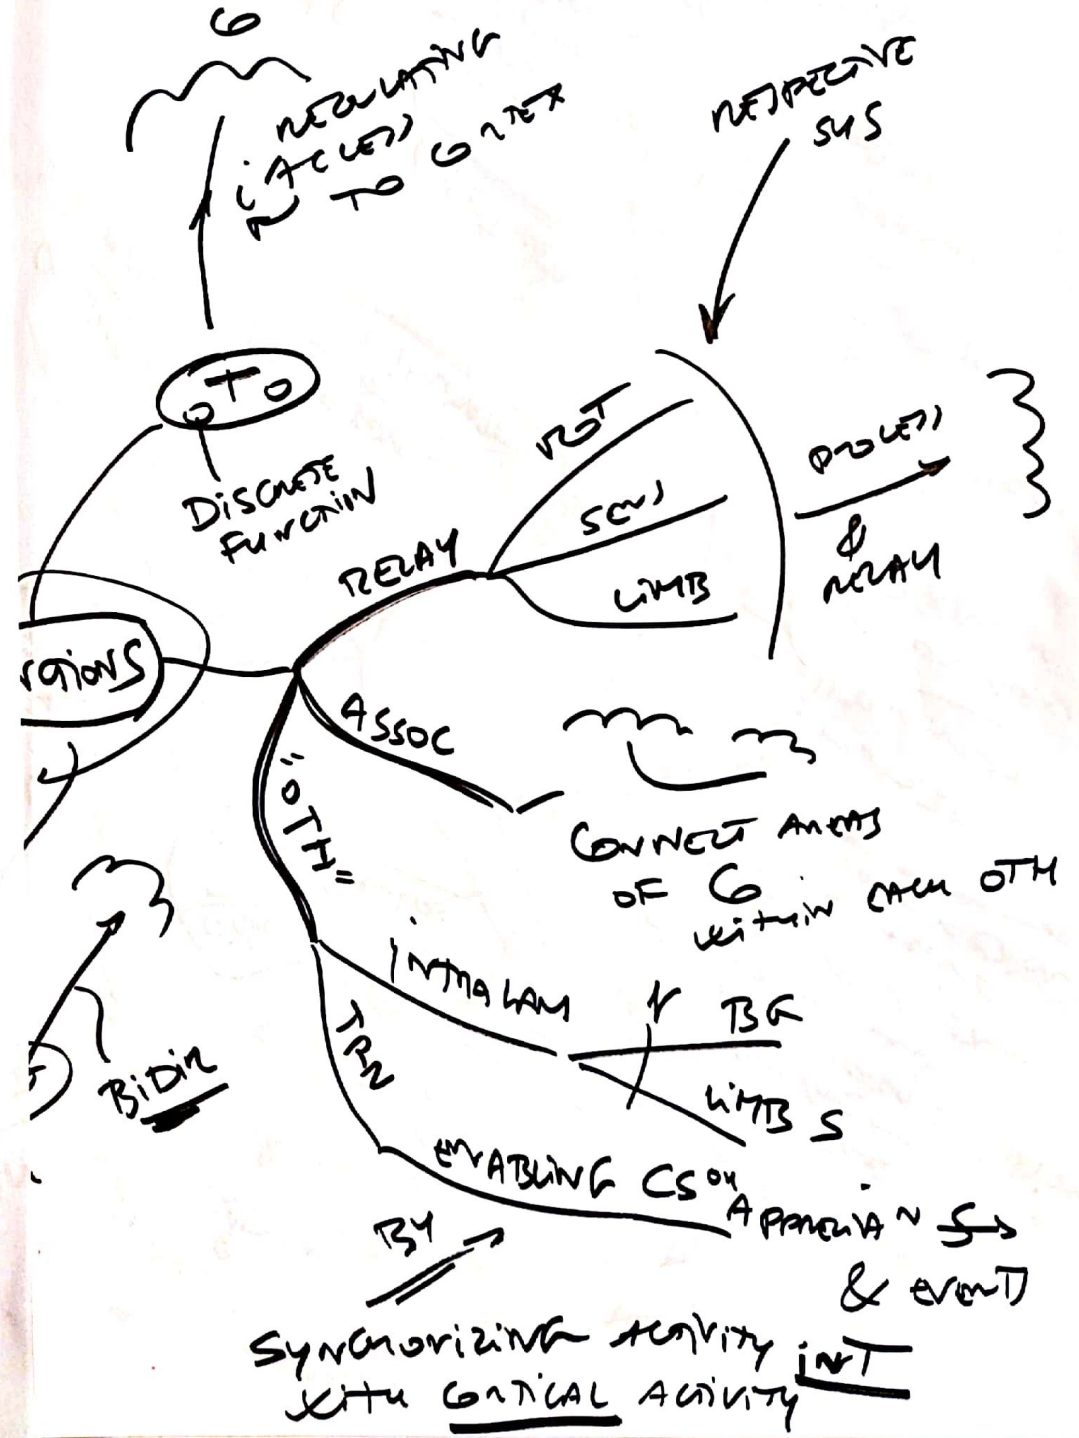 C
REGULATING
ACCESS
TO CORTEX
RESPECTIVE
SYS
T
DISCRETE
FUNCTION
RELAY
MOT
SENS
LIMB
PROCESS
&
RELAY
NCTIONS
ASSOC
CONNECT AREAS
OF C
WITHIN EACH OTH
"OTH"
INTRALAM
BG
LIMB S
BIDIR
ENABLING CS
APPRECIAN S
& EVENTS
BY
SYNCHORIZING ACTIVITY INT
WITH CORTICAL ACTIVITY